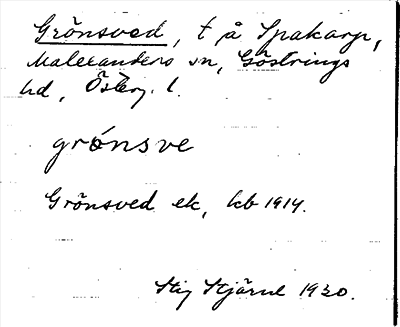 Grönsved, t å Spakarp,
Malexanders sn, Göstrings
hd, Österg. l.
grönsve
Grönsved ek, kb 1914.
Stig Stjärne 1930.